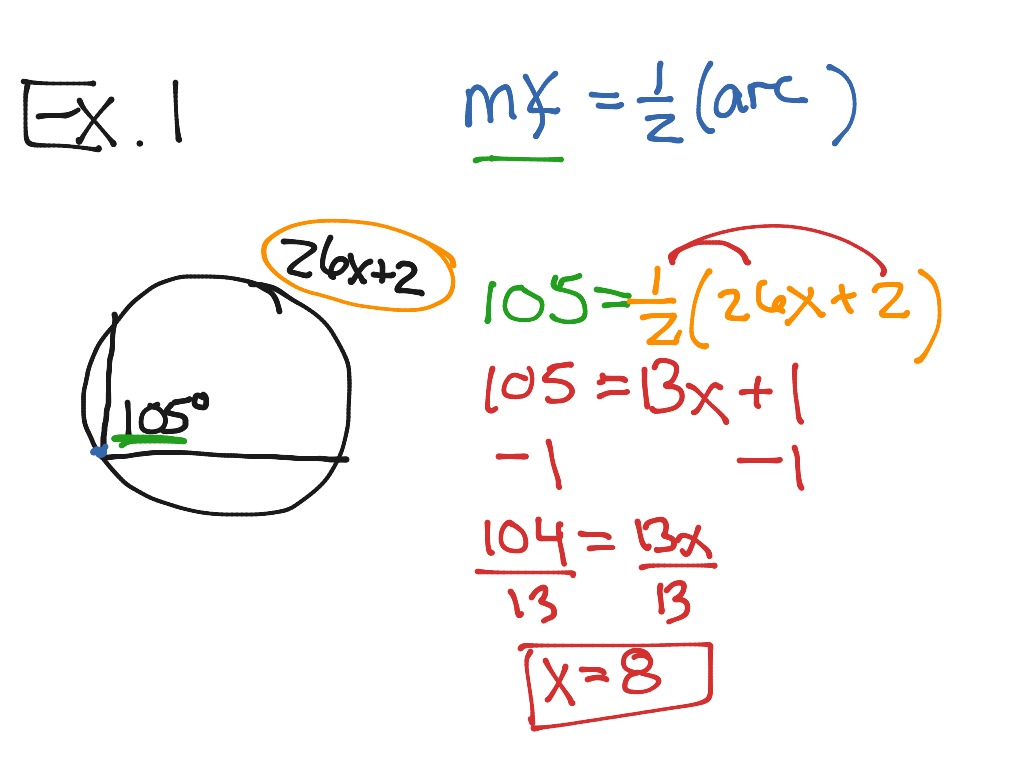 Ex. 1
m∡ = 1/2 (arc )
26x+2
105°
105 = 1/2 (26x + 2)
105 = 13x + 1
- 1 - 1
104 = 13x
13 13
x = 8